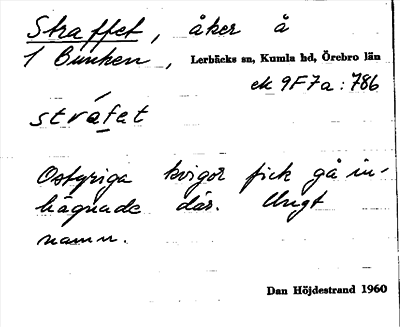 Straffet, åker å
1 Bunken, Lerbäcks sn, Kumla hd, Örebro län
ek 9F7a:786
stráfet
Ostyriga kvigor fick gå in-
hägnade där. Ungt
namn.
Dan Höjdestrand 1960